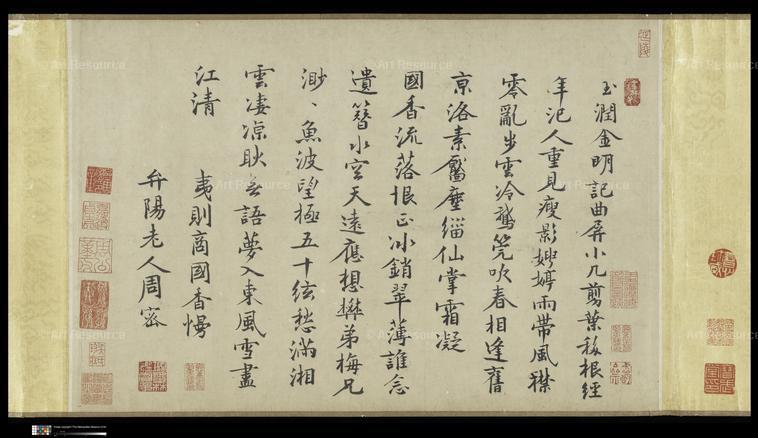 玉潤金明記曲屏小几剪葉移根經
年汜人重見瘦影娉婷雨帶風襟
零亂步雲冷鵞筦吹春相逢舊
京洛素靨塵緇仙掌霜凝
國香流落恨正冰銷翠薄誰念
遺簪水空天遠應想礬弟梅兄
渺、魚波望極五十絃愁滿湘
雲凄凉耿無語夢入東風雪盡
江清 夷則商國香慢
弁陽老人周密
© Art Resource